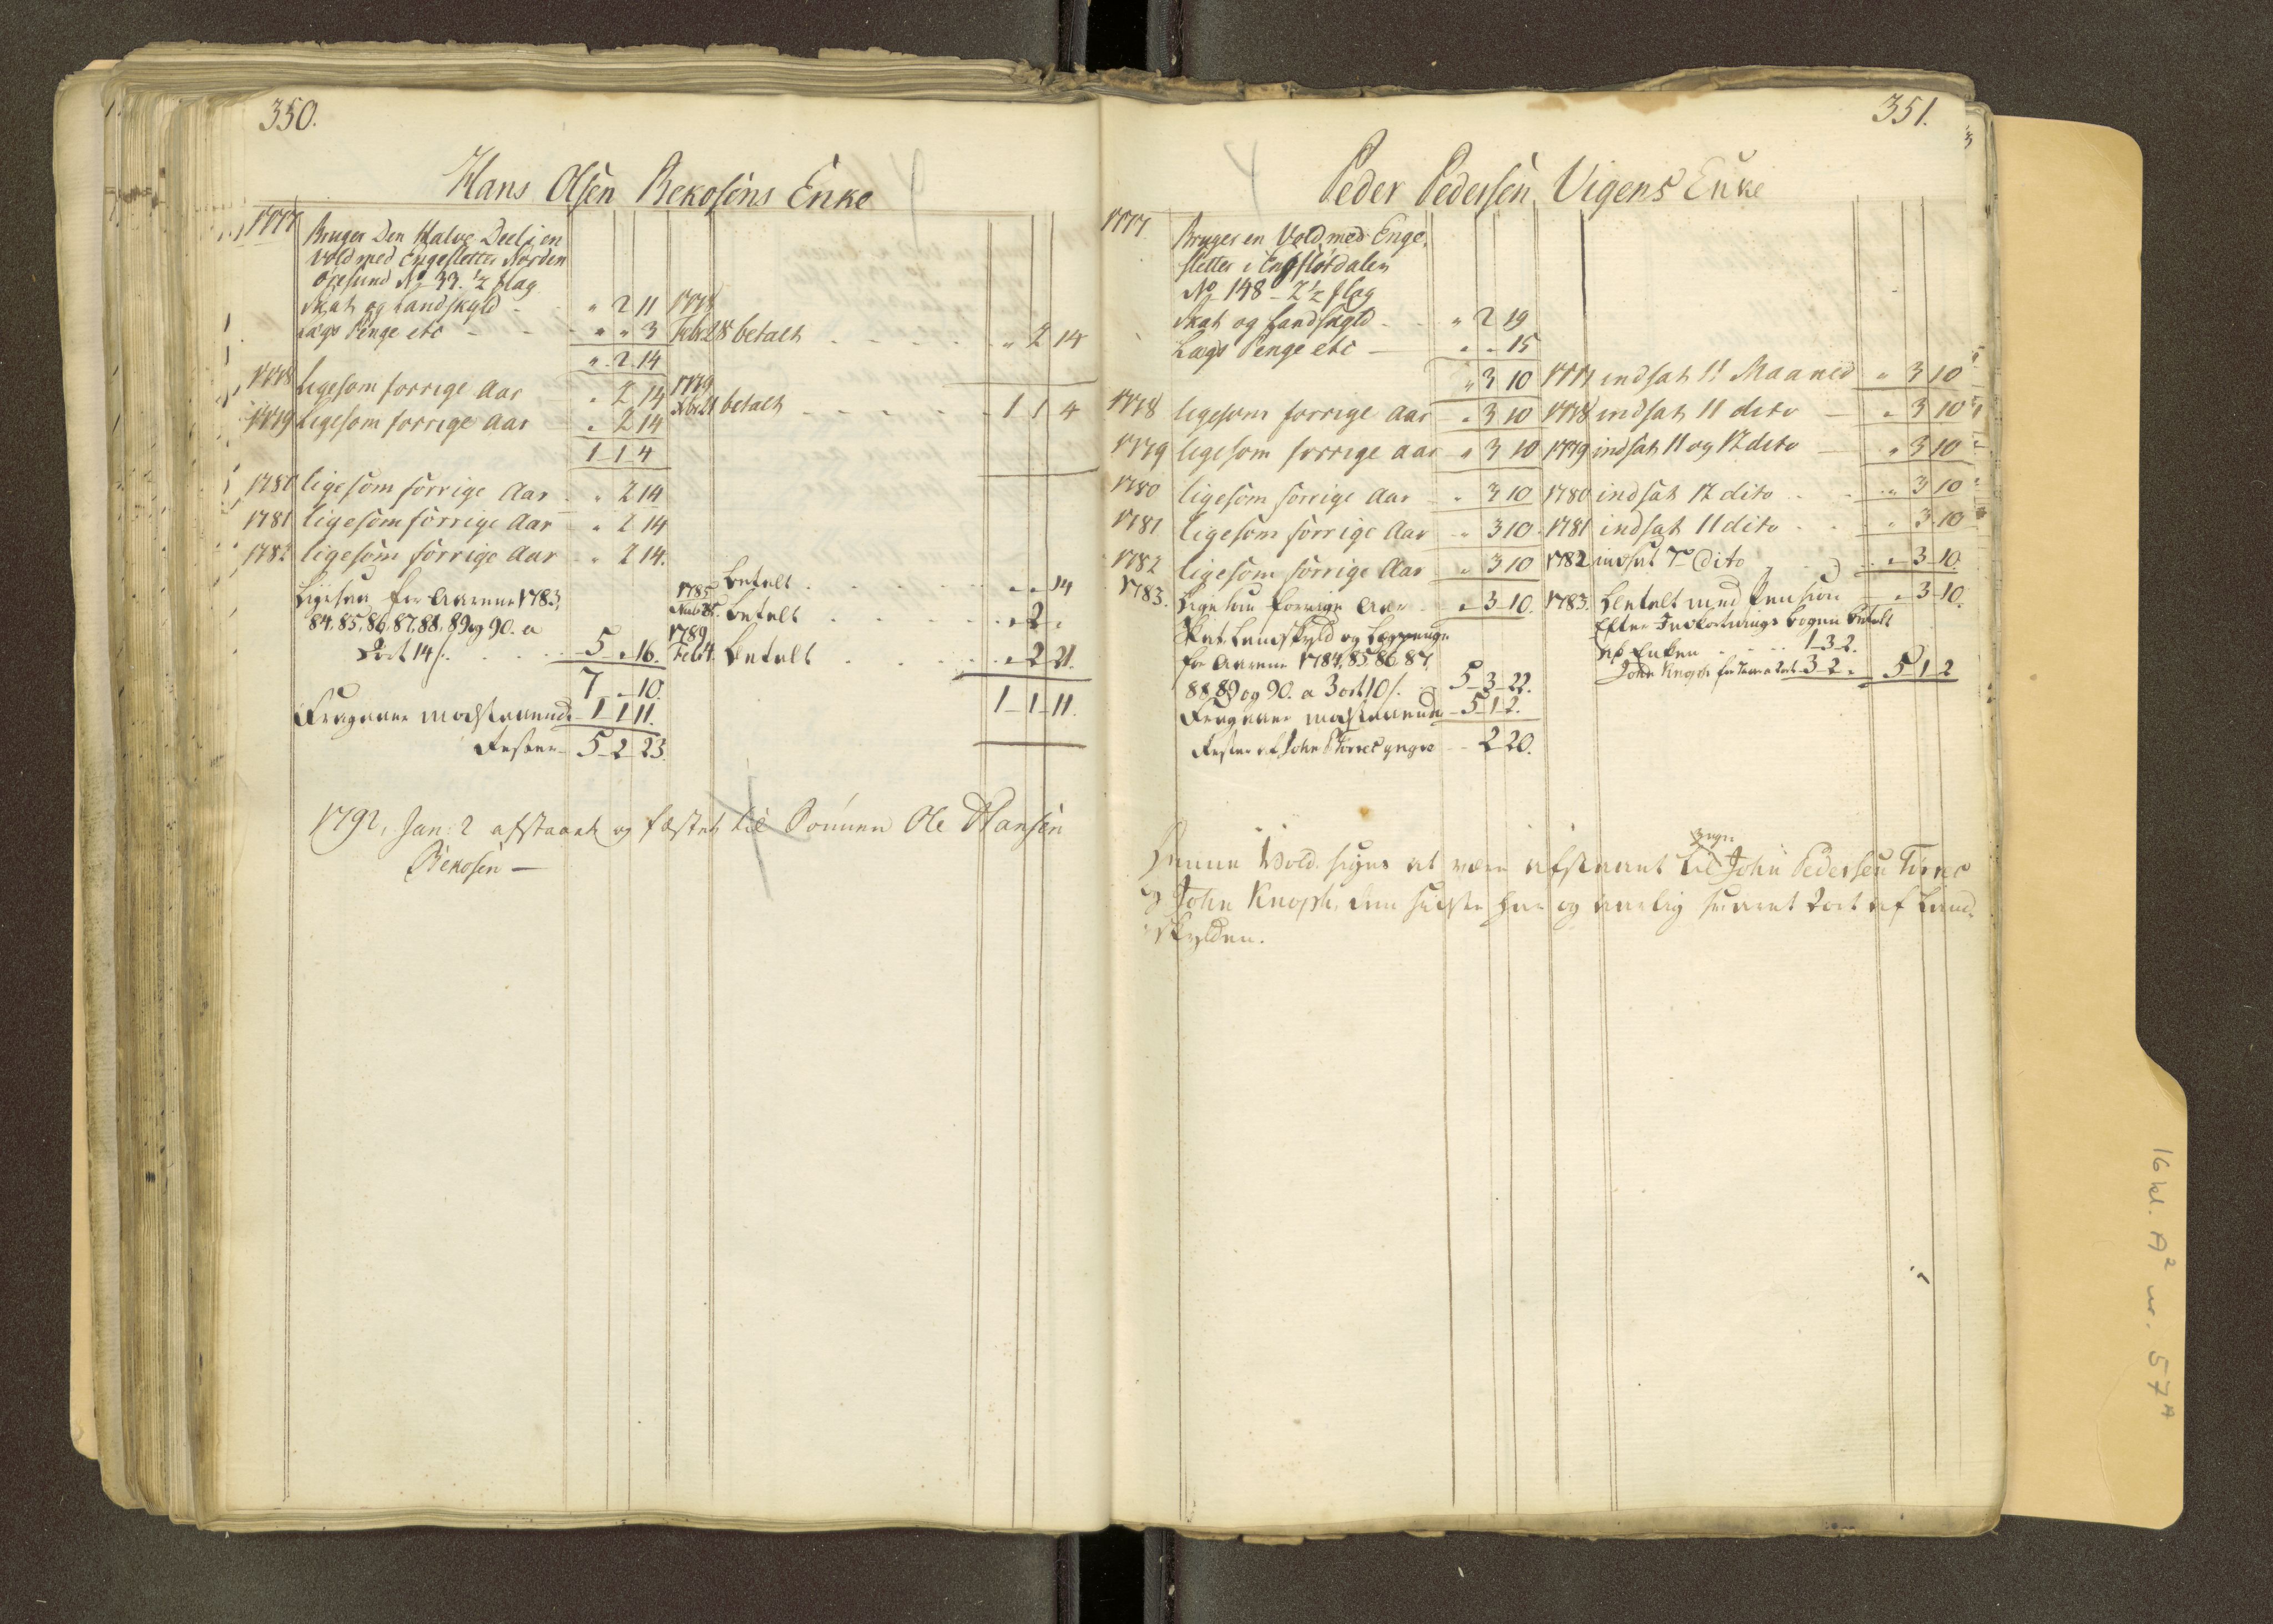 350.
Hans Olsen Bekosens Enke
1777 Bruger Den Halve Deel i en
Vold med Engesletter Norden
Øresund No 33. ½ flag
Skat og Landskyld - " 2 11 1778
Lægs Penge etc - - " " 3 Febr. 28 betalt - - - - " 2 14
" 2 14
1778 ligesom forrige Aar " 2 14 1779
1779 ligesom forrige Aar " 2 14 betalt - - - - - 1 1 4
1 1 4
1780 ligesom forrige Aar - " 2 14
1781 ligesom forrige Aar - " 2 14
1782 ligesom forrige Aar - " 2 14.
Ligesaa for Aarene 1783, 1785 betalt . . . " " 14
84, 85, 86, 87, 88, 89 og 90. a betalt . . . " 2 "
2 ort 14 s. . . . 5 " 16. 1789 Feb. 4. betalt . . . " 2 21.
7 " 10. 1 1 11.
Fragaaer modstaaende 1 1 11.
Rester 5 2 23.
1792, Jan: 2 afstaaet og fæstet til Sønnen Ole Hansen
Bekosen —
351.
Peder Pedersen Vigens Enke
1777 Bruger en Vold med Enge
sletter i
No 148 - 2½ flag
Skat og Landskyld - " 2 19
Lægs Penge etc - " " 15
" 3 10 1777 indsat 11 Maaned " 3 10
1778 ligesom forrige Aar " 3 10 1778 indsat 11 dito - " 3 10
1779 ligesom forrige aar " 3 10 1779 indsat 11 og 12 dito - " 3 10
1780 ligesom forrige Aar " 3 10 1780 indsat 12 dito . . " 3 10
1781 ligesom forrige Aar " 3 10 1781 indsat 11 dito . . " 3 10
1782 ligesom forrige Aar " 3 10 1782 indsat 7de Dito " 3 10.
1783. Ligesom forrige Aar " 3 10. 1783. Betalt med Pension " 3 10.
Skat Landskyld og Lægspenge Efter Indfordrings bogen betalt
for Aarene 1784, 85 86 87, af Enken . . . 1 3 2.
88, 89 og 90. a 3 ort 10 s. 5 3 22. John Knoph for 3 2 " 5 1 2
Fragaaer modstaaende 5 1 2.
Rester af John Tørres yngre - 2 20.
yngre
Denne Vold siges at være afstaaet til John Pedersen Tørres
og John Knoph, den sidste har og aarlig svaret 2 ort af Land-
skylden.
16 kl. A² nr. 57 A